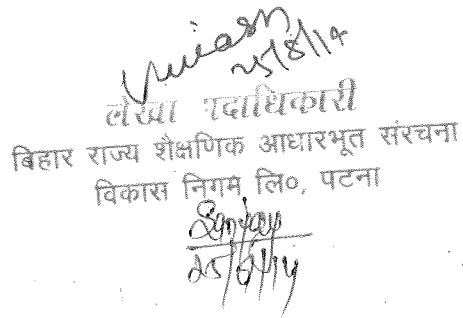 25/8/14
लेखा पदाधिकारी
बिहार राज्य शैक्षणिक आधारभूत संरचना
विकास निगम लि०, पटना
Sanjay
25/8/14